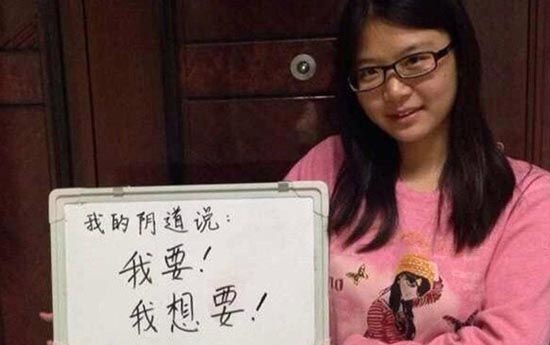 我的阴道说:
我要!
我想要!